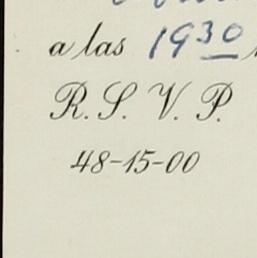 a las 1930
R. S. V. P.
48-15-00